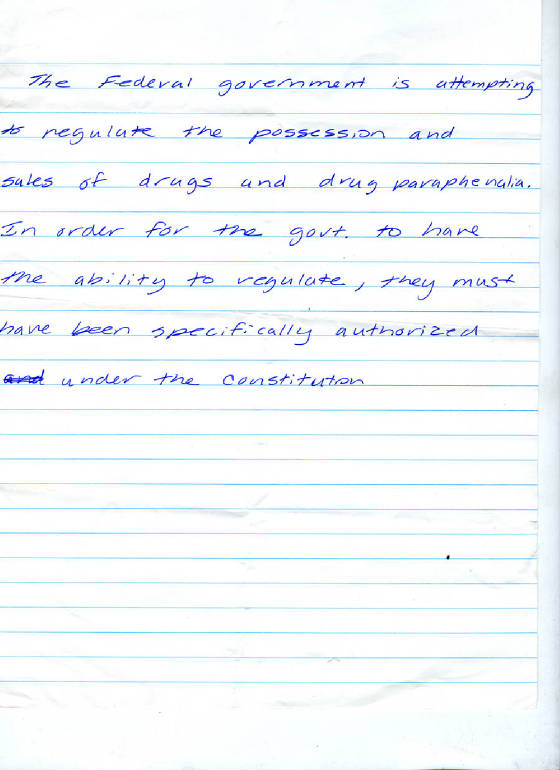 The Federal government is attempting
to regulate the possession and
sales of drugs and drug paraphenalia.
In order for the govt. to have
the ability to regulate, they must
have been specifically authorized
and under the Constituton